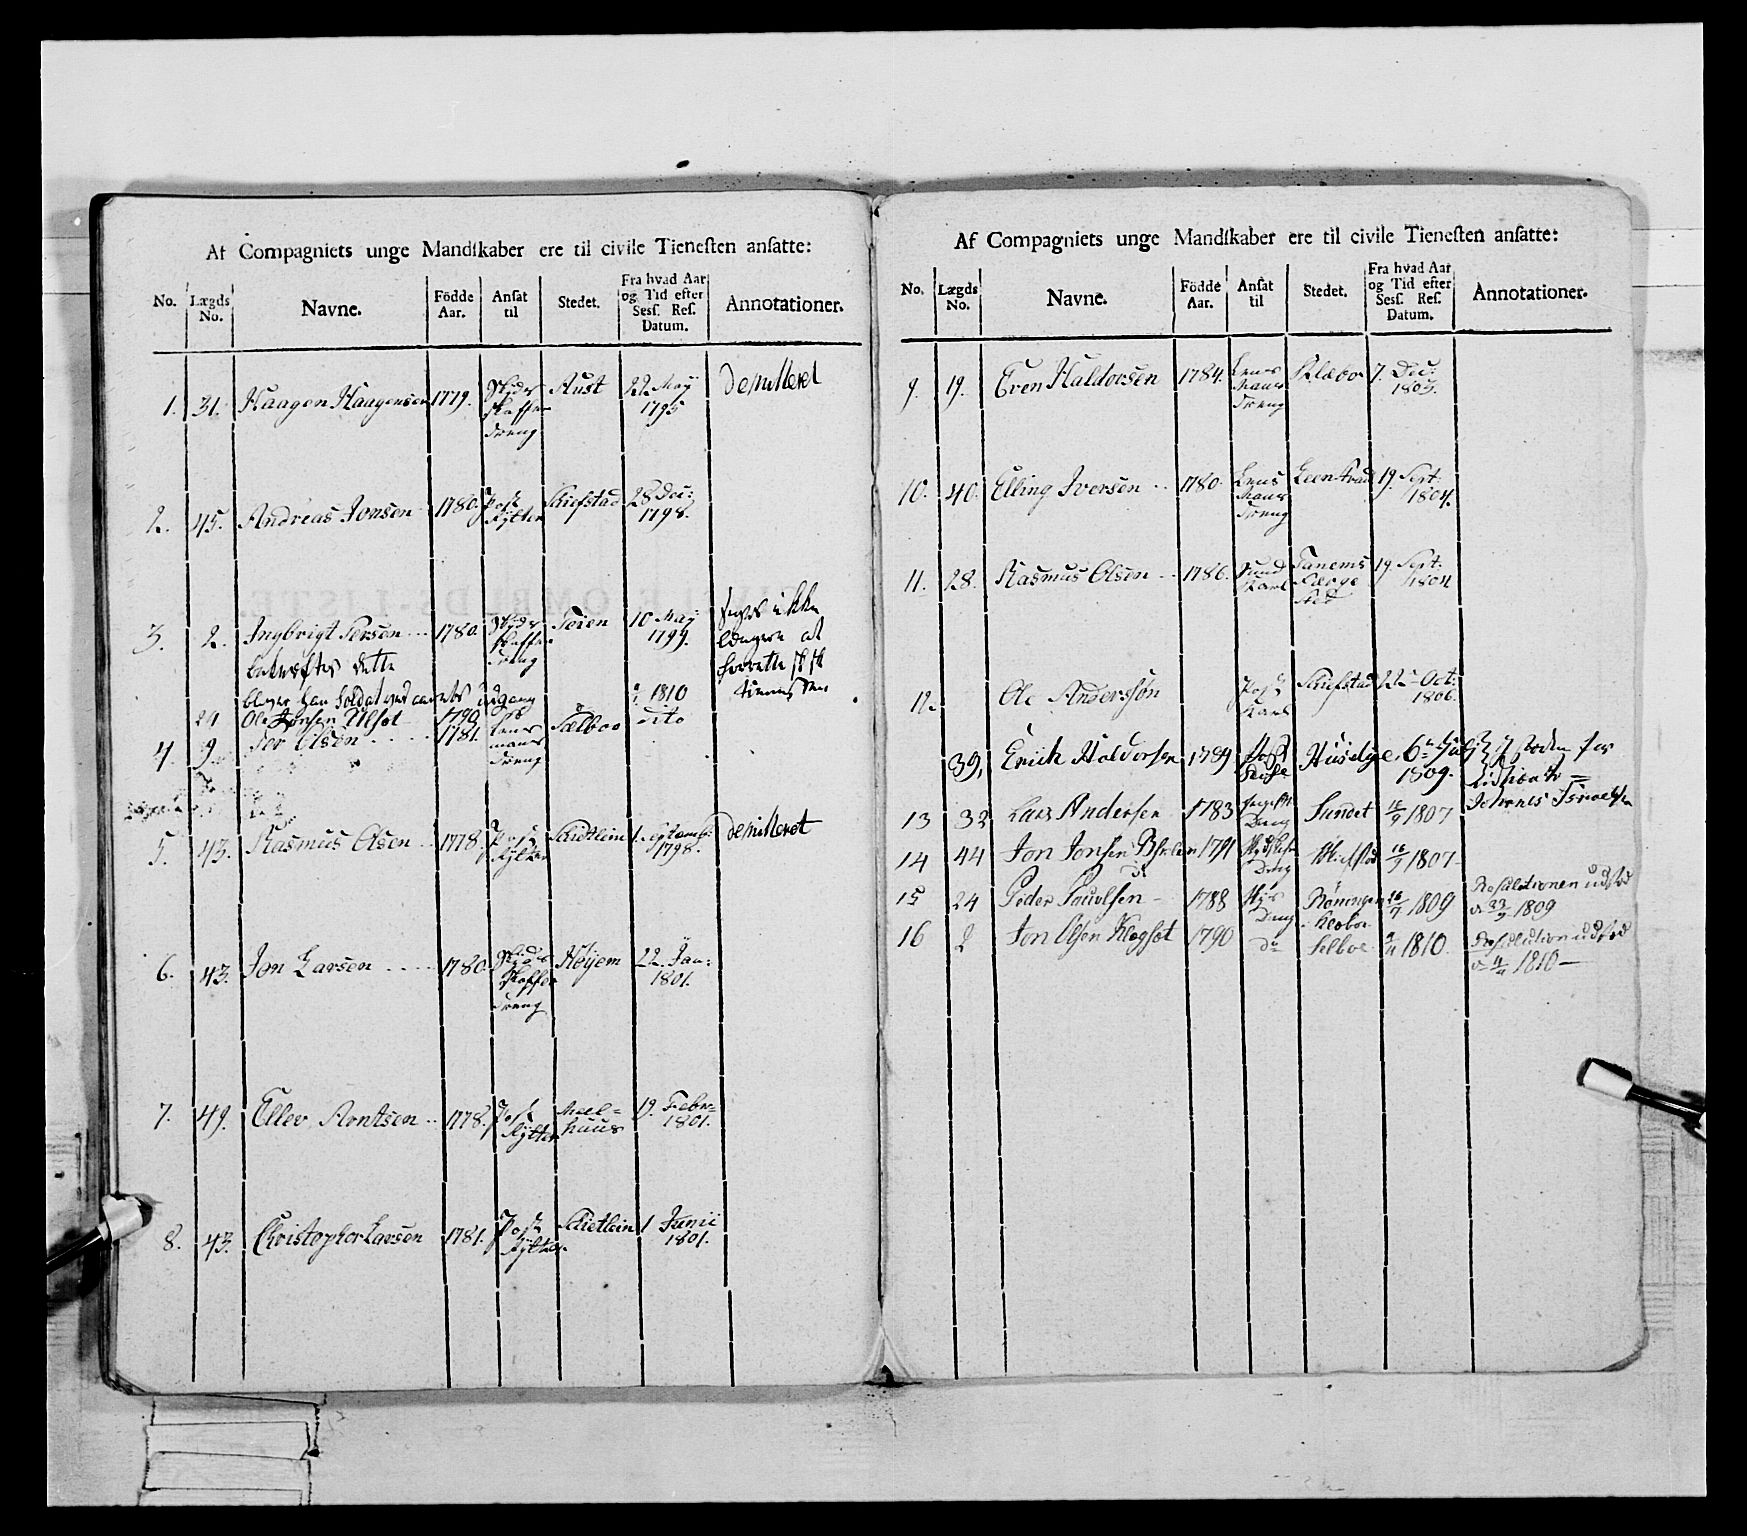 Af Compagniets unge Mandskaber ere til civile Tienesten ansatte:
No. Lægds No. Navne. Födde Aar. Ansat til Stedet. Fra hvad Aar og Tid efter Sess. Res. Datum. Annotationer.
1. 31. Haagen Haagensen 1779. Skyds skaffer dreng Aust 22 May 1795 demitteret
2. 45. Andreas Jonsen 1780. Post Rytter Skiefstad 28 Dec: 1798.
3. 2. Ingbrigt Persen 1780. Skyds skaffer dreng Teien 10 May 1799.
24 Ole Jonsen Ulset 1790 1810 dito
4. 9. Per Olsen 1781. Lens mans dreng Sælboe
5. 43. Rasmus Olsen 1778. Post Rytter Skietlein 1. Septemb: 1798. demitteret
6. 43. Jon Larsen 1780. Skyds skaffer dreng Høyem 22. Jan: 1801.
7. 49. Ellev Arntsen 1778. Post Rytter Meel= huus 19. Febr= 1801.
8. 43. Christopher Larsen 1781. Post Rytter Skietlein 1 Junii 1801.
Af Compagniets unge Mandskaber ere til civile Tienesten ansatte:
No. Lægds No. Navne. Födde Aar. Ansat til Stedet. Fra hvad Aar og Tid efter Sess. Res. Datum. Annotationer.
9. 19. Even Haldorsen 1784. Lens Mans dreng Klæboe 7. Dec: 1803.
10. 40. Elling Iversen 1780. Lens Mans dreng Leenstrand 19. Sept: 1804.
11. 28. Rasmus Olsen 1786. Sund Karl Tanems Færge sted 19 Sept: 1804
12. Ole Anderssøn Post Karl Skiefstad 22 Oct: 1806.
39, Erick Haldorsen 1789 Post Husebye 6 July 1809.
13 32 Lars Andersen 1783 Dreng Sundet 16/9 1807
14 44 Jon Jonsen 1791 Dreng Skiefstad 16/9 1807
15 24 Peder Poulsen 1788 Dreng Röningen Kleboe 26/7 1809 Resolutionen udsted 1809
16 2 Jon Olsen Klegset 1790 do Selboe 1810. Resolution udsted 1810